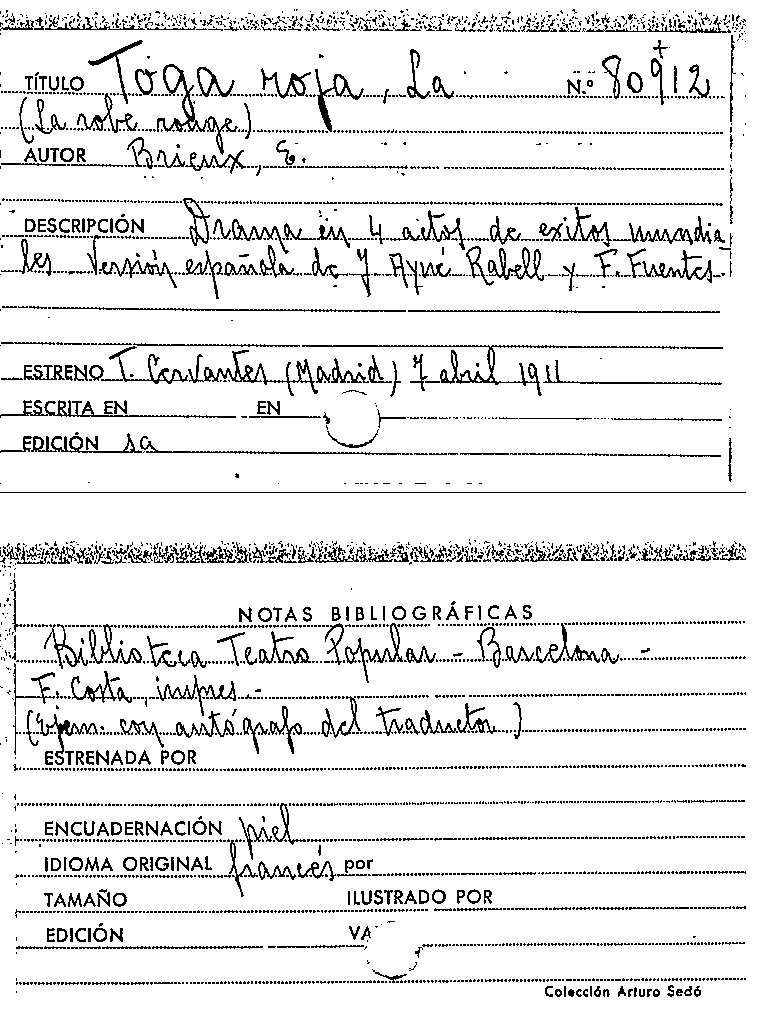 TÍTULO Toga roja, La N.º 80912
(La robe rouge)
AUTOR Brieux, E.
DESCRIPCIÓN Drama en 4 actos de exitos mundia
les Versión española de J. Aymé Rabell y F. Fuentes.
ESTRENO T. Cervantes (Madrid) 7 abril 1911
ESCRITA EN EN
EDICIÓN sa
NOTAS BIBLIOGRÁFICAS
Biblioteca Teatro Popular - Barcelona -
F. Costa, impres.-
(Ejem. con autógrafo del traductor)
ESTRENADA POR
ENCUADERNACIÓN piel
IDIOMA ORIGINAL francés por
TAMAÑO ILUSTRADO POR
EDICIÓN
Colección Arturo Sedó